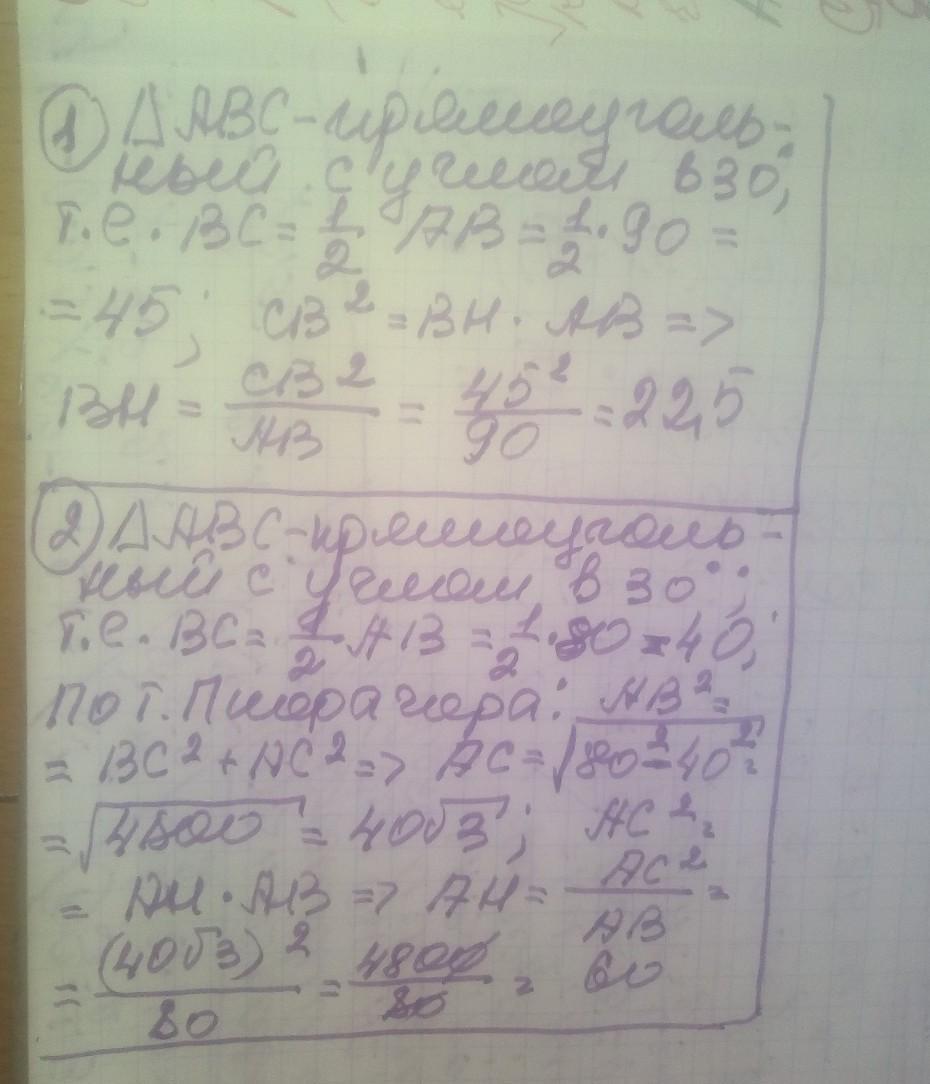 ① △ABC - прямоуголь-
ный с углом в 30°;
т.е. BC = 1/2 AB = 1/2 · 90 =
= 45; CB² = BH · AB =>
BH = CB²/AB = 45²/90 = 22,5
② △ABC - прямоуголь-
ный с углом в 30°;
т.е. BC = 1/2 · AB = 1/2 · 80 = 40;
По т. Пифагора: AB² =
= BC² + AC² => AC = √(80² - 40²) =
= √4800 = 40√3; AC² =
= AH · AB => AH = AC²/AB =
= (40√3)²/80 = 4800/80 = 60